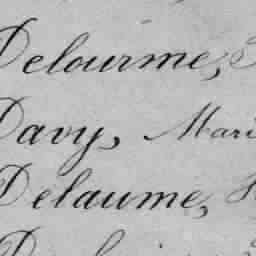 Delourme,
Davy, Mari
Delaume,